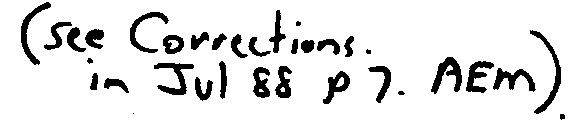 (see Corrections.
in Jul 88 p 7. AEM).